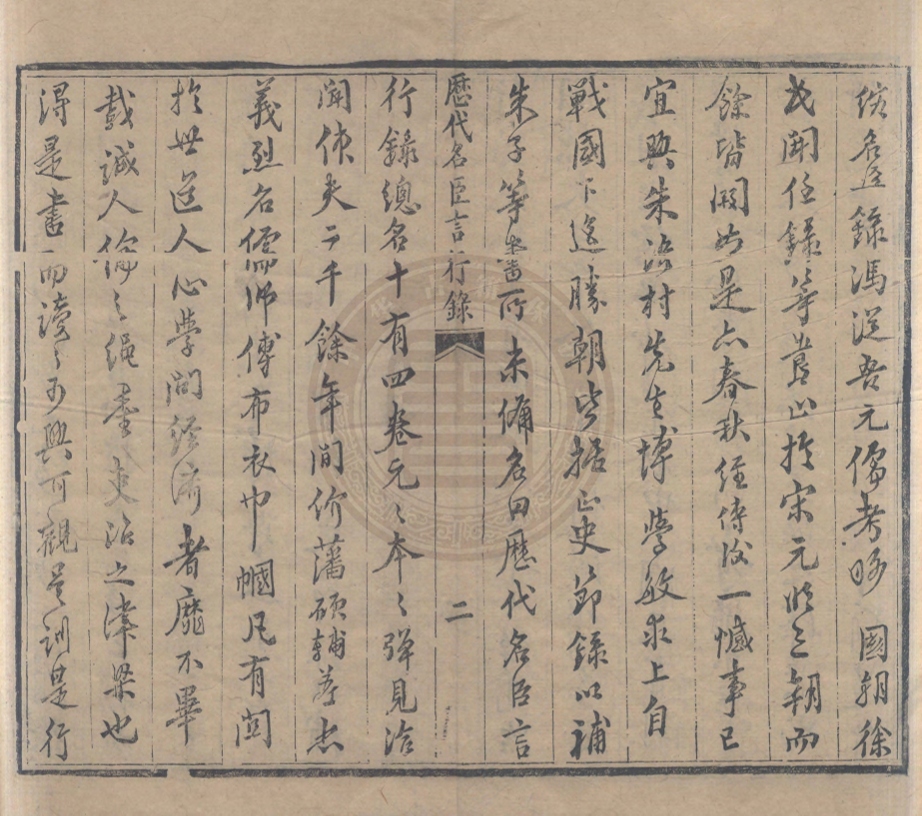 續名臣錄馮從吾元儒考略 國朝徐
開任錄等書止於宋元明三朝而
餘皆闕如是亦春秋經傳後一憾事已
宜興朱治村先生博學敏求上自
戰國下迄勝朝皆據正史節錄以補
朱子等書所未備名曰歷代名臣言
歷代名臣言行錄 二
行錄總名十有四卷元元本本殫見洽
聞使夫二千餘年間价藩碩輔孝忠
義烈名儒師傅布衣巾幗凡有關
於世道人心學問經濟者靡不畢
載誠人倫之繩墨吏治之津梁也
得是書而讀之可興可觀是訓是行